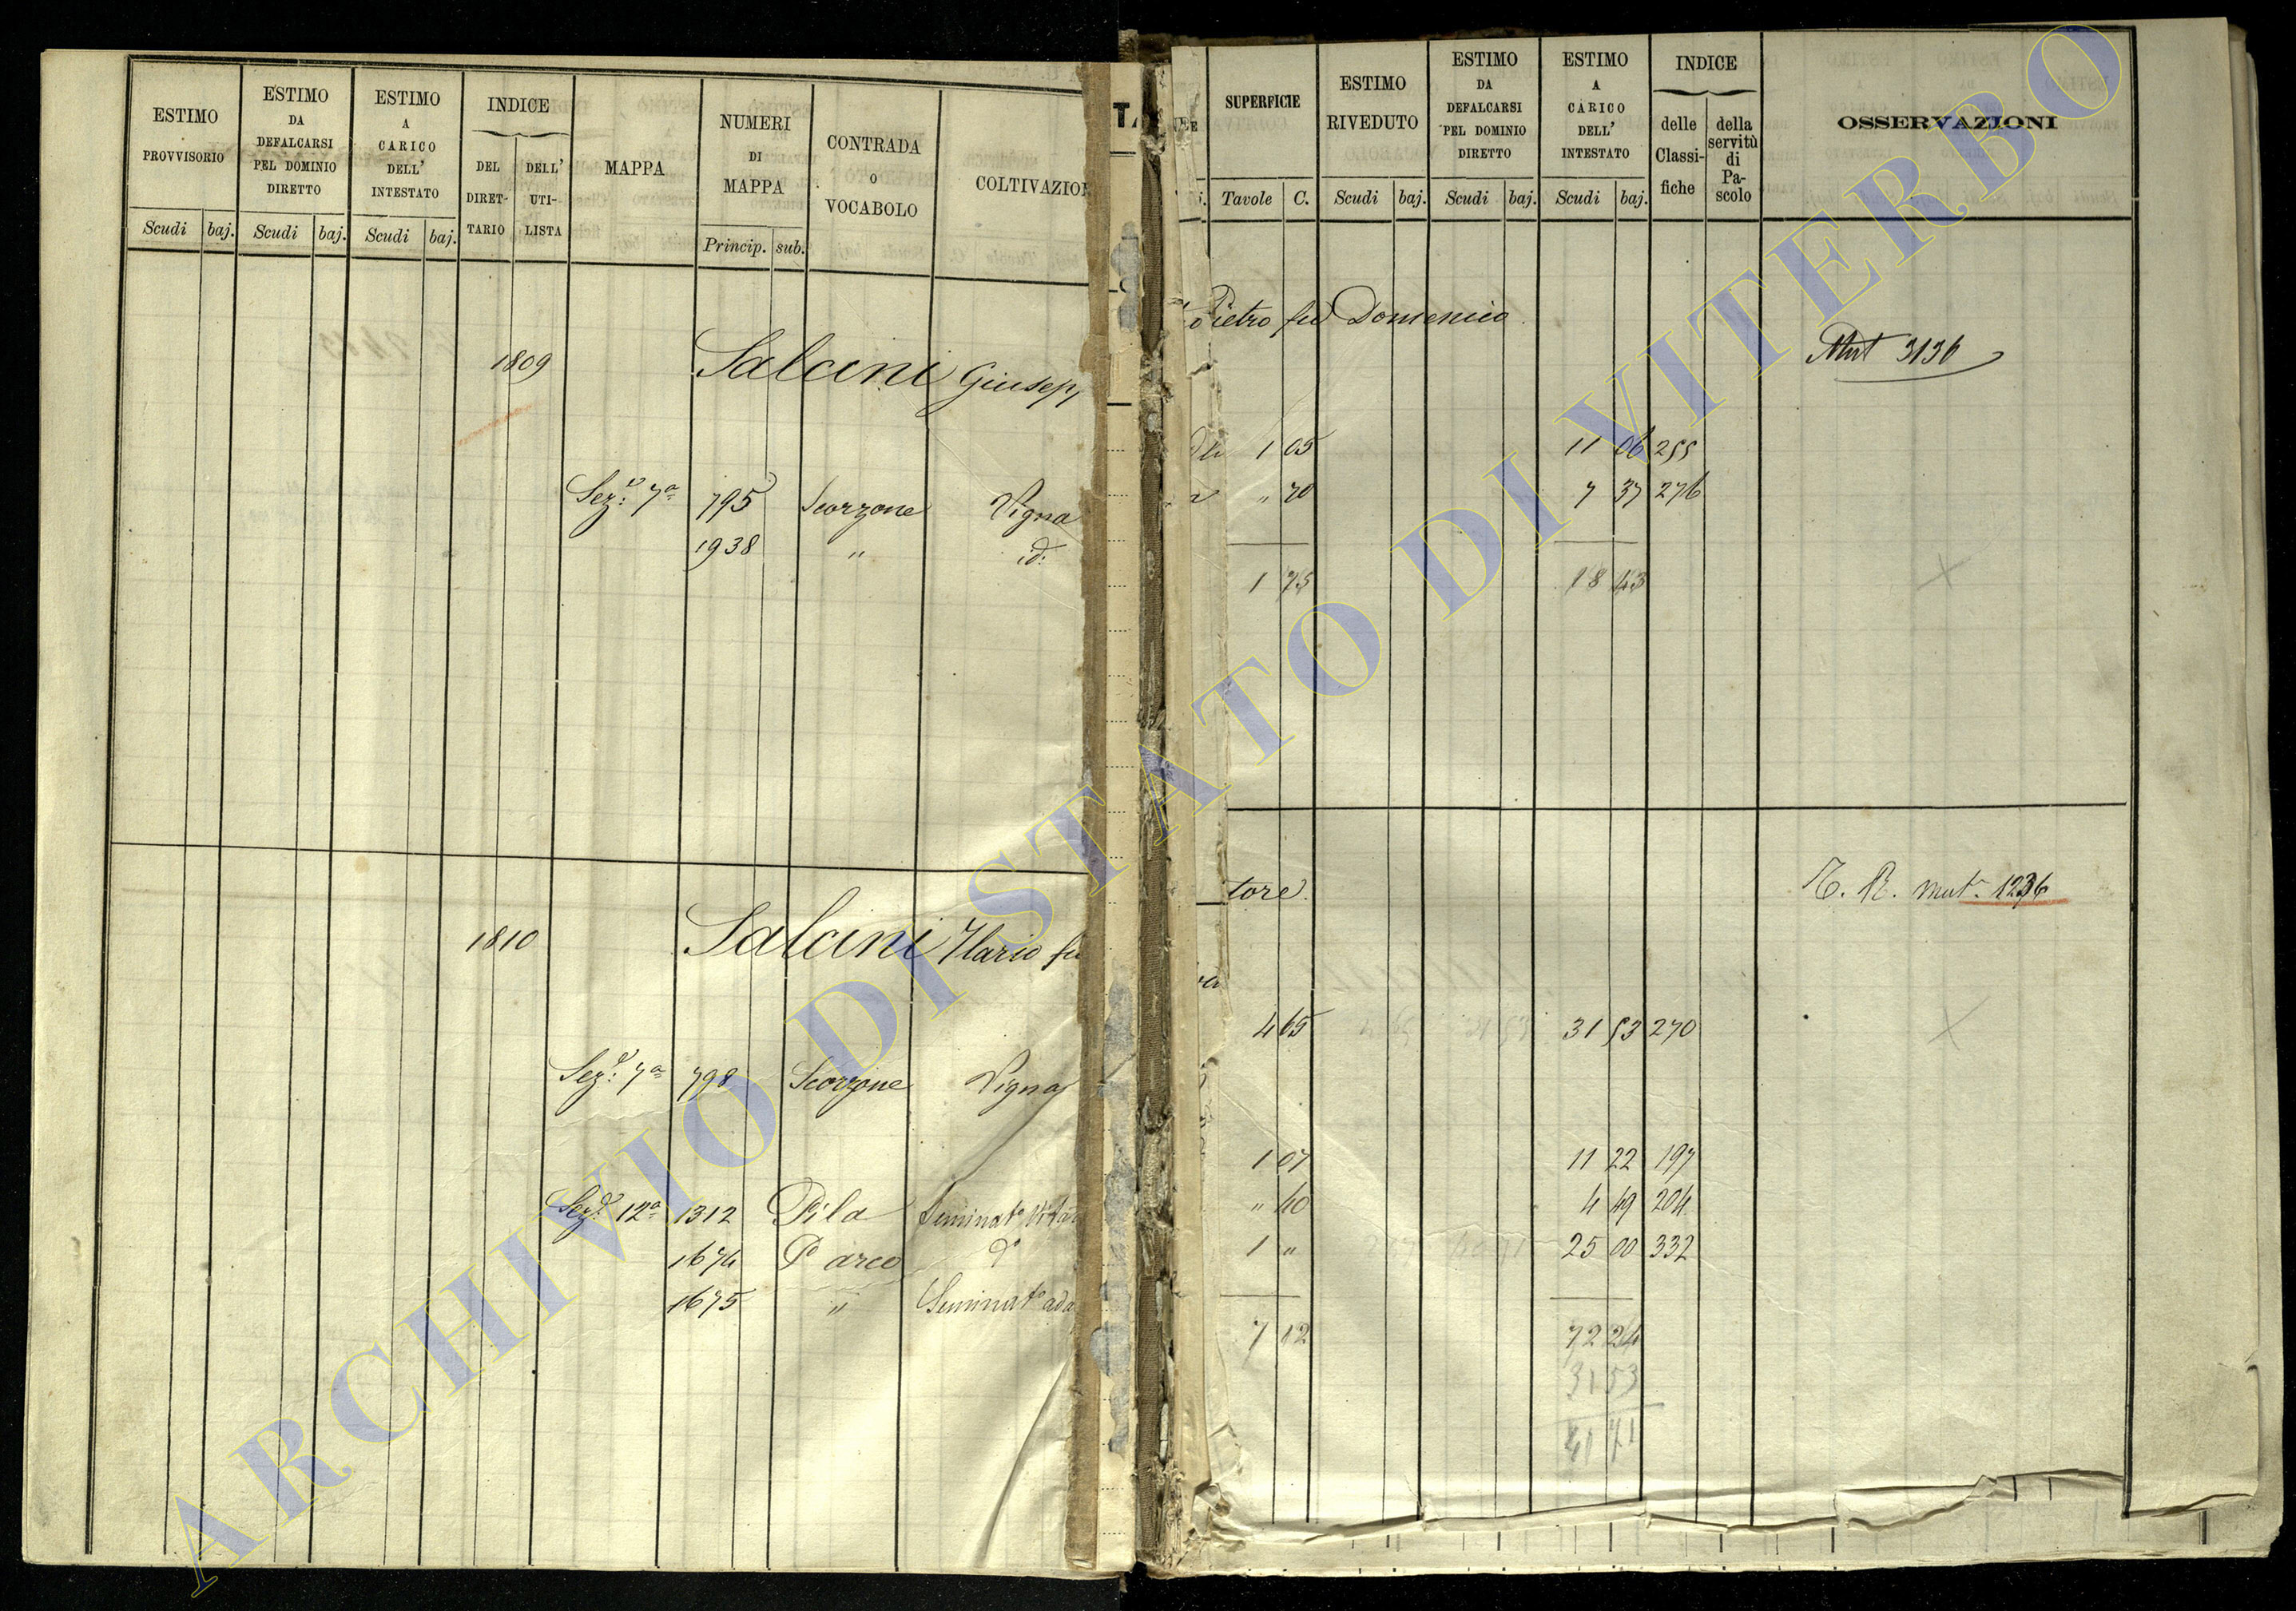 ESTIMO PROVVISORIO
ESTIMO DA DEFALCARSI PEL DOMINIO DIRETTO
ESTIMO A CARICO DELL' INTESTATO
INDICE
DEL DIRET-TARIO
DELL' UTI-LISTA
MAPPA
NUMERI DI MAPPA
CONTRADA O VOCABOLO
COLTIVAZION
Scudi baj. Scudi baj. Scudi baj. Princip. sub.
1809 Salcini Giusep
Sez: 7a 795 Scorzone Vigna
1938 " id:
1810 Salcini Ilario fu
Sez: 7a 798 Scorzone Vigna
Sez: 12a 1312 Pila Seminat° Vitat
1674 P° arco d°
1675 " Seminat° ada
SUPERFICIE
ESTIMO RIVEDUTO
ESTIMO DA DEFALCARSI PEL DOMINIO DIRETTO
ESTIMO A CARICO DELL' INTESTATO
INDICE
delle Classi-fiche
della servitù di Pa-scolo
OSSERVAZIONI
Tavole C. Scudi baj. Scudi baj. Scudi baj.
Pietro fu Domenico
Mut 3136
1 05 11 06 255
" 70 7 37 276
1 75 18 43
tore
T. R. mut. 1236
4 65 31 53 270
1 07 11 22 197
" 40 4 49 204
1 " 25 00 332
7 12 72 24
31 53
41 71
ARCHIVIO DI STATO DI VITERBO